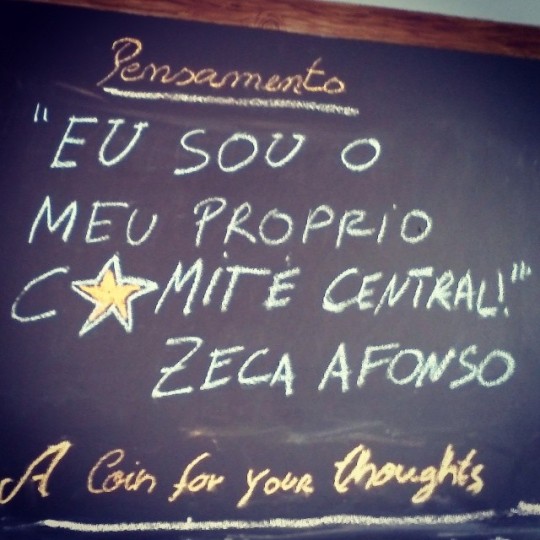 Pensamento
"EU SOU O
MEU PROPRIO
C★MITÉ CENTRAL!"
ZECA AFONSO
A Coin for your thoughts